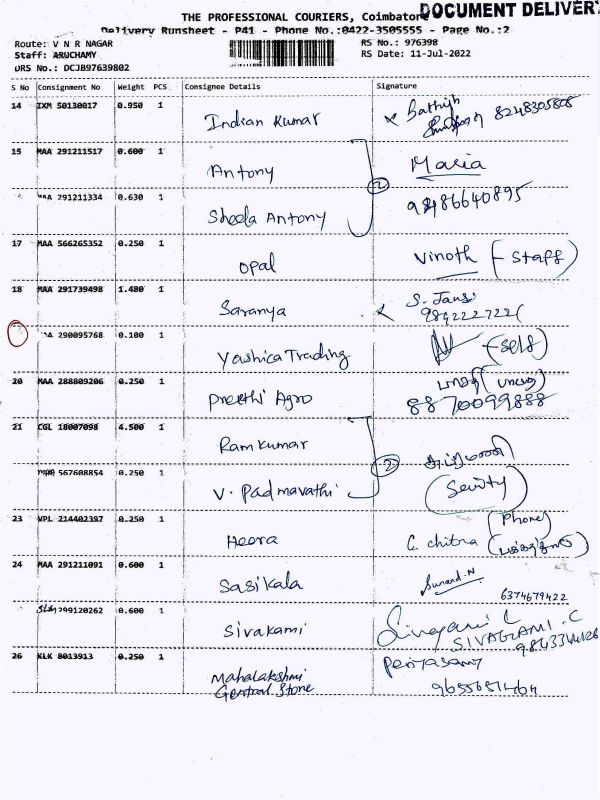 THE PROFESSIONAL COURIERS, Coimbatore DOCUMENT DELIVERY
Delivery Runsheet - P41 - Phone No.:0422-3505555 - Page No.:2
Route: V N R NAGAR RS No.: 976398
Staff: ARUCHAMY RS Date: 11-Jul-2022
DRS No.: DCJB97639802
S No Consignment No Weight PCS Consignee Details Signature
14 IXM 50130017 0.950 1 Indian Kumar 8248305805
15 MAA 291211517 0.600 1 Antony Maria
291211334 0.630 1 Sheela Antony 2
17 MAA 566265352 0.250 1 Opal Vinoth (Staff)
18 MAA 291739498 1.480 1 Saranya S. Jansi
290095768 0.100 1 Yashica Trading (Self)
20 MAA 288809206 0.250 1 Preethi Agro 8870099888
21 CGL 18007098 4.500 1 Ramkumar
567608854 0.250 1 V. Padmavathi 2
23 VPL 214402397 0.250 1 Heera C. chitra (Phone)
24 MAA 291211091 0.600 1 Sasikala 6374679422
299120262 0.600 1 Sivakami SIVAGAMI . C
26 KLK 8013913 0.250 1 Mahalakshmi Periyasamy